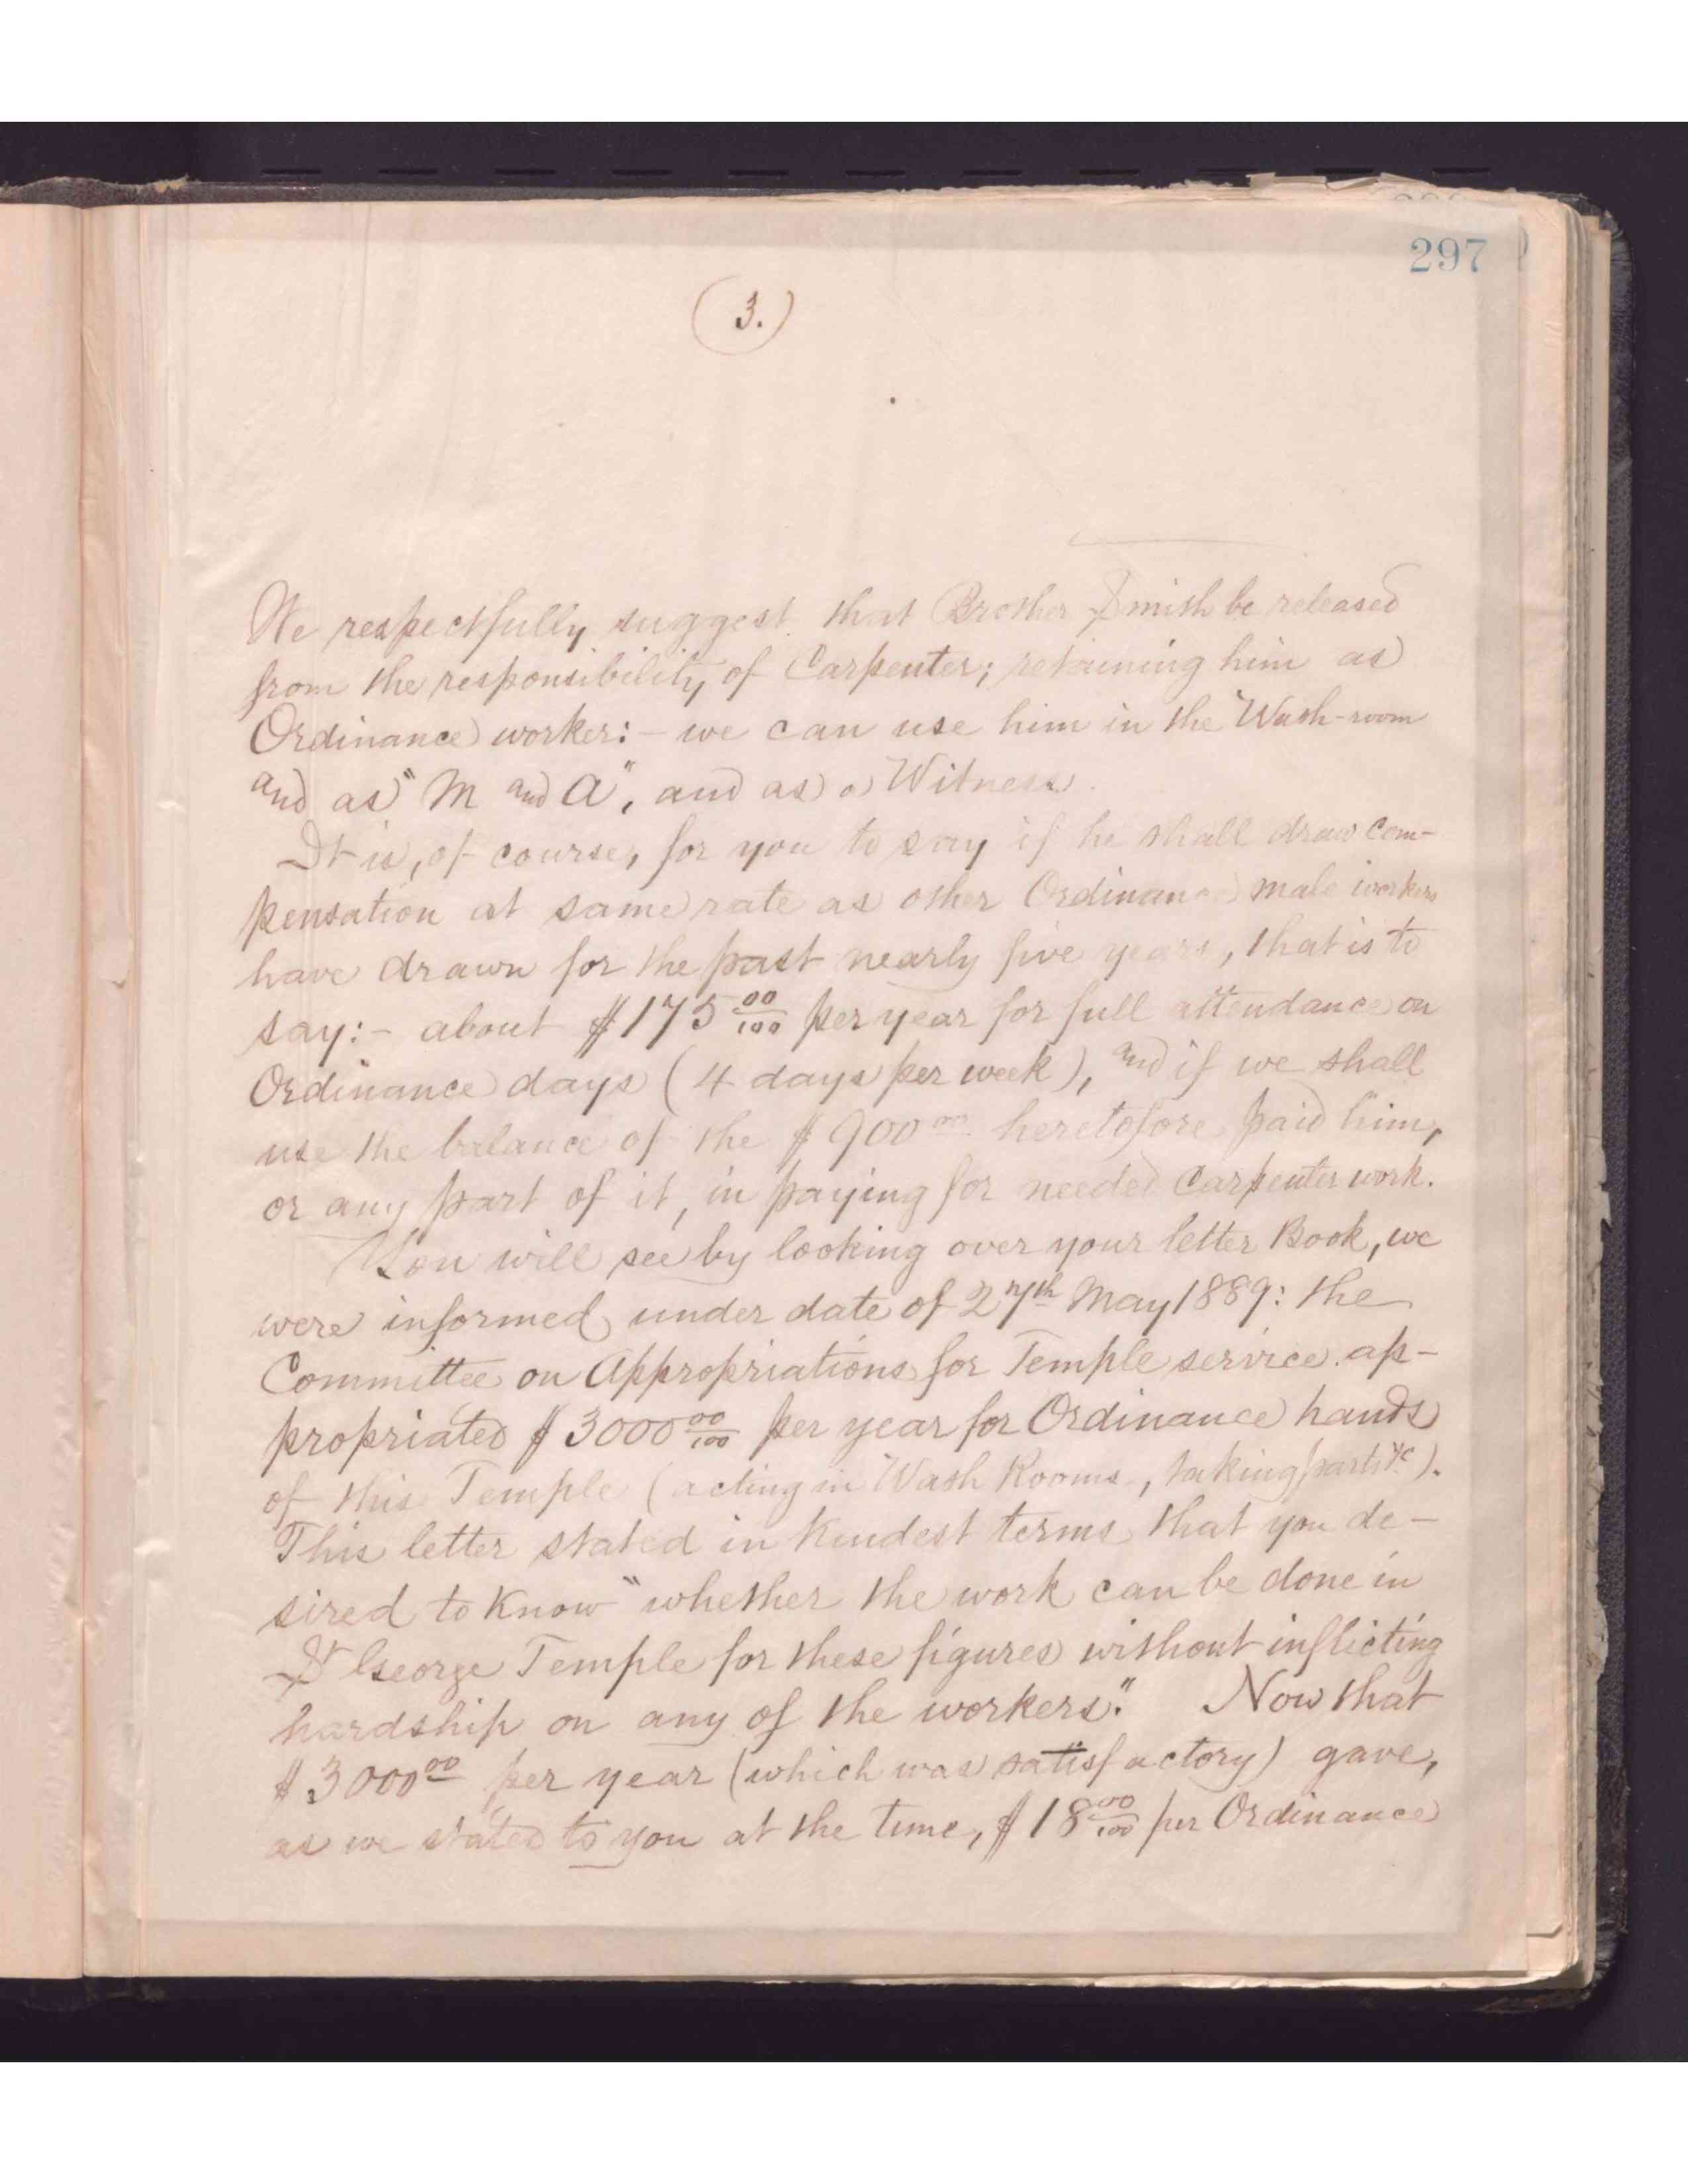 297
(3.)
We respectfully suggest that Brother Smith be released
from the responsibility of Carpenter; retaining him as
Ordinance worker:- we can use him in the Wash-room
and as "M and A", and as a Witness.
It is, of course, for you to say if he shall draw com-
pensation at same rate as other Ordinance male workers
have drawn for the past nearly five years, that is to
say:- about $175 00/100 per year for full attendance on
Ordinance days (4 days per week), and if we shall
use the balance of the $900 00 heretofore paid him,
or any part of it, in paying for needed Carpenter work.
You will see by looking over your letter Book, we
were informed under date of 27th May 1889: the
Committee on Appropriations for Temple service ap-
propriated $3000 00/100 per year for Ordinance hands
of this Temple (acting in Wash Rooms, taking parts &c).
This letter stated in Kindest terms that you de-
sired to Know "whether the work can be done in
St George Temple for these figures without inflicting
hardship on any of the workers." Now that
$3000 00 per year (which was satisfactory) gave,
as we stated to you at the time, $18 00/100 per Ordinance